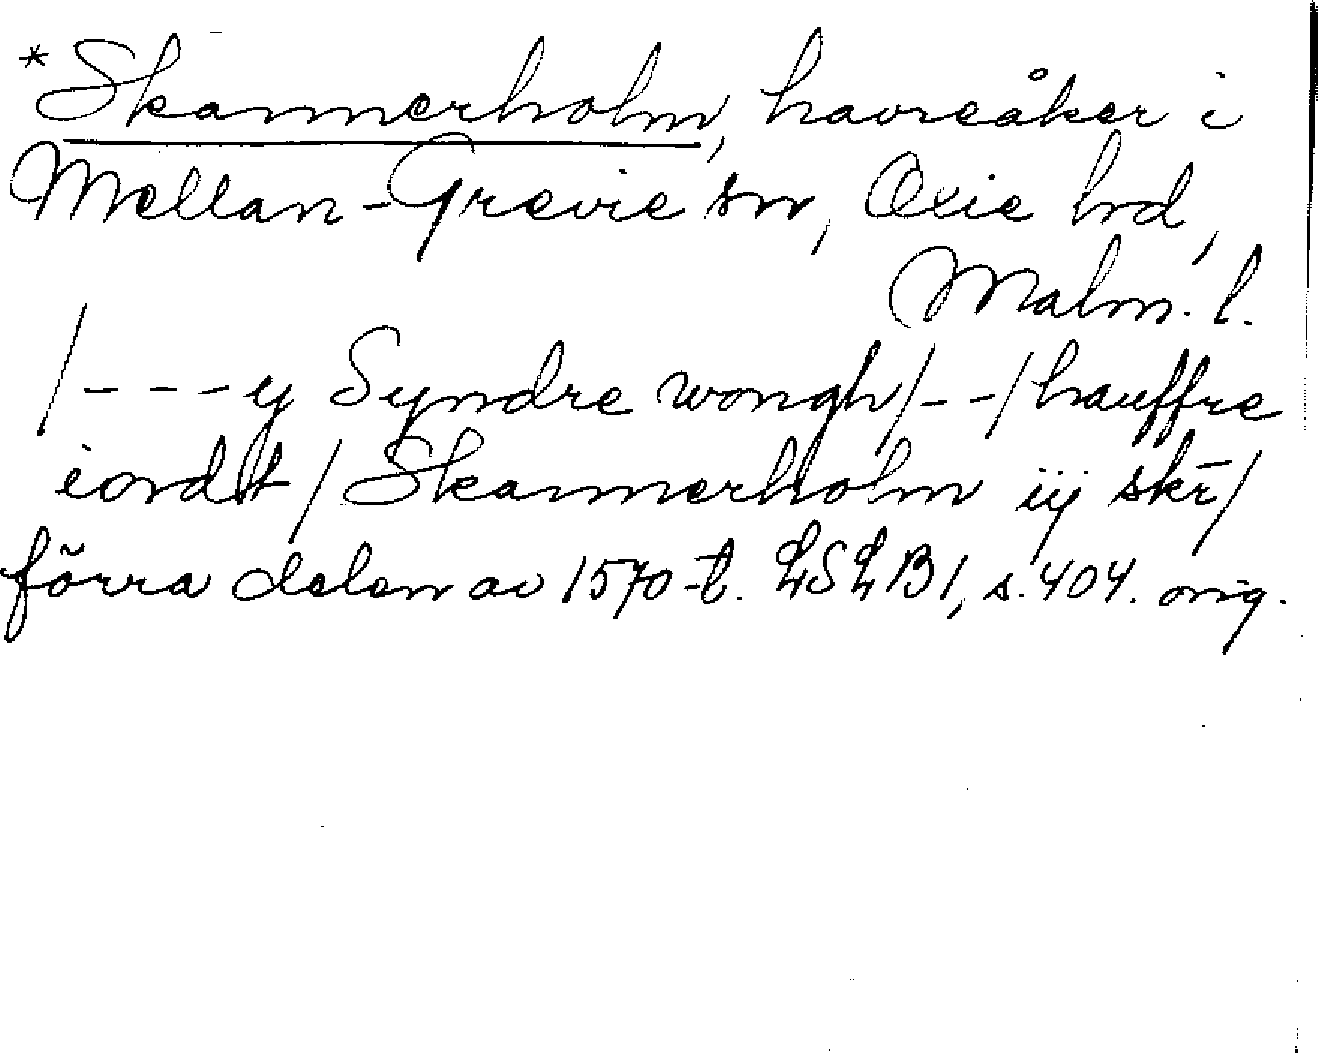 *Skannerholm, havreåker i
Mellan-Grevie sn, Oxie hd,
Malm. l.
/- - - y Syndre wongh/- -/hauffre
iordt/Skannerholm iij skr̄/
förra delen av 1570-t. LSLB1, s. 404. orig.